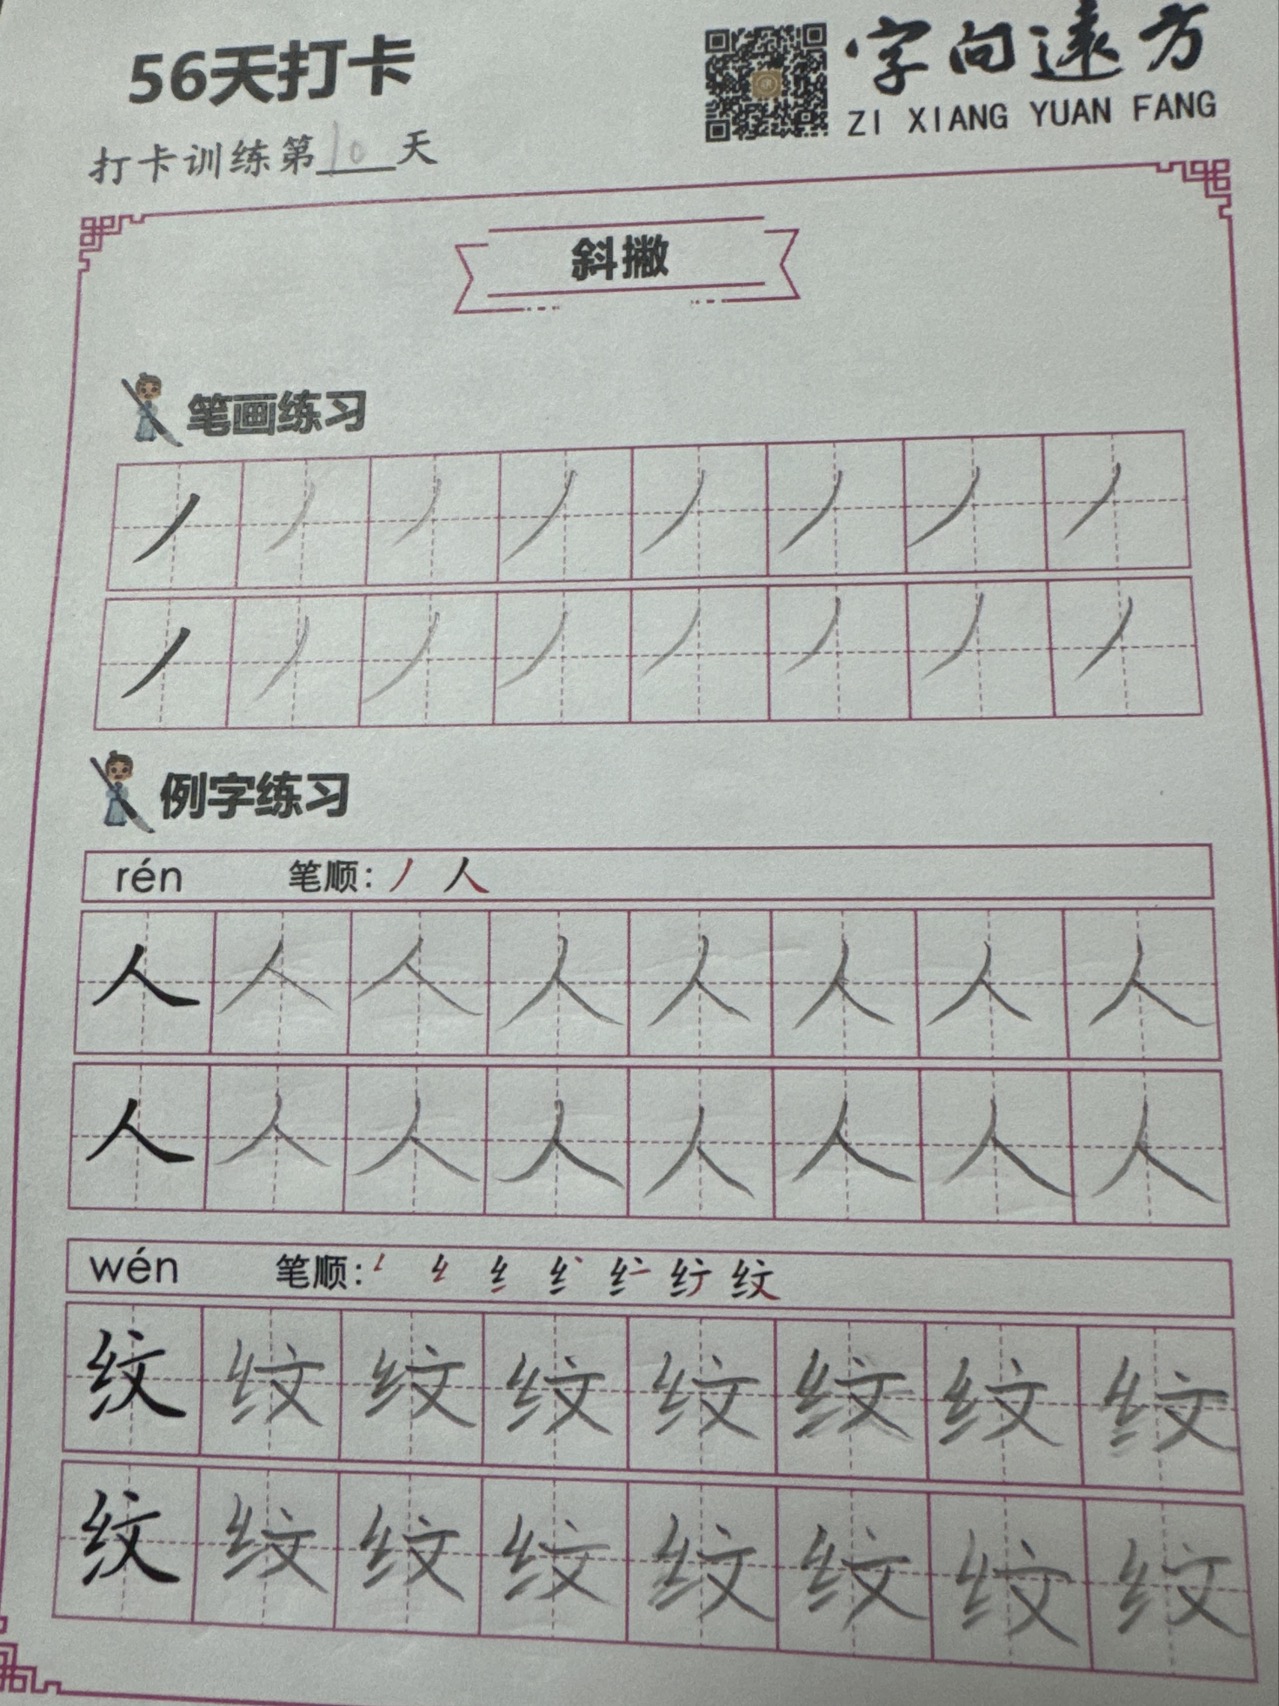 56天打卡
字向遠方
ZI XIANG YUAN FANG
打卡训练第10天
斜撇
笔画练习
丿 丿 丿 丿 丿 丿 丿 丿
丿 丿 丿 丿 丿 丿 丿 丿
例字练习
rén 笔顺: 丿 人
人 人 人 人 人 人 人 人
人 人 人 人 人 人 人 人
wén 笔顺: 纹
纹 纹 纹 纹 纹 纹 纹 纹
纹 纹 纹 纹 纹 纹 纹 纹